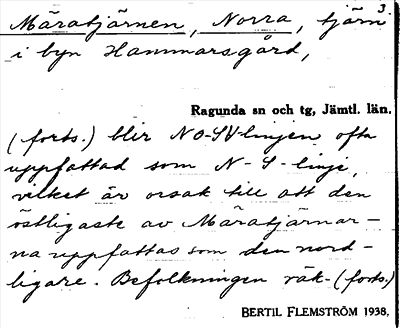 3.
Märatjärnen, Norra, tjärn
i byn Hammarsgård,
Ragunda sn och tg, Jämtl. län.
(forts.) blir NO-SV-linjen ofta
uppfattad som N-S-linje,
vilket är orsak till att den
östligaste av Märatjärnar-
na uppfattas som den nord-
ligare. Befolkningen räk-(forts.)
BERTIL FLEMSTRÖM 1938.